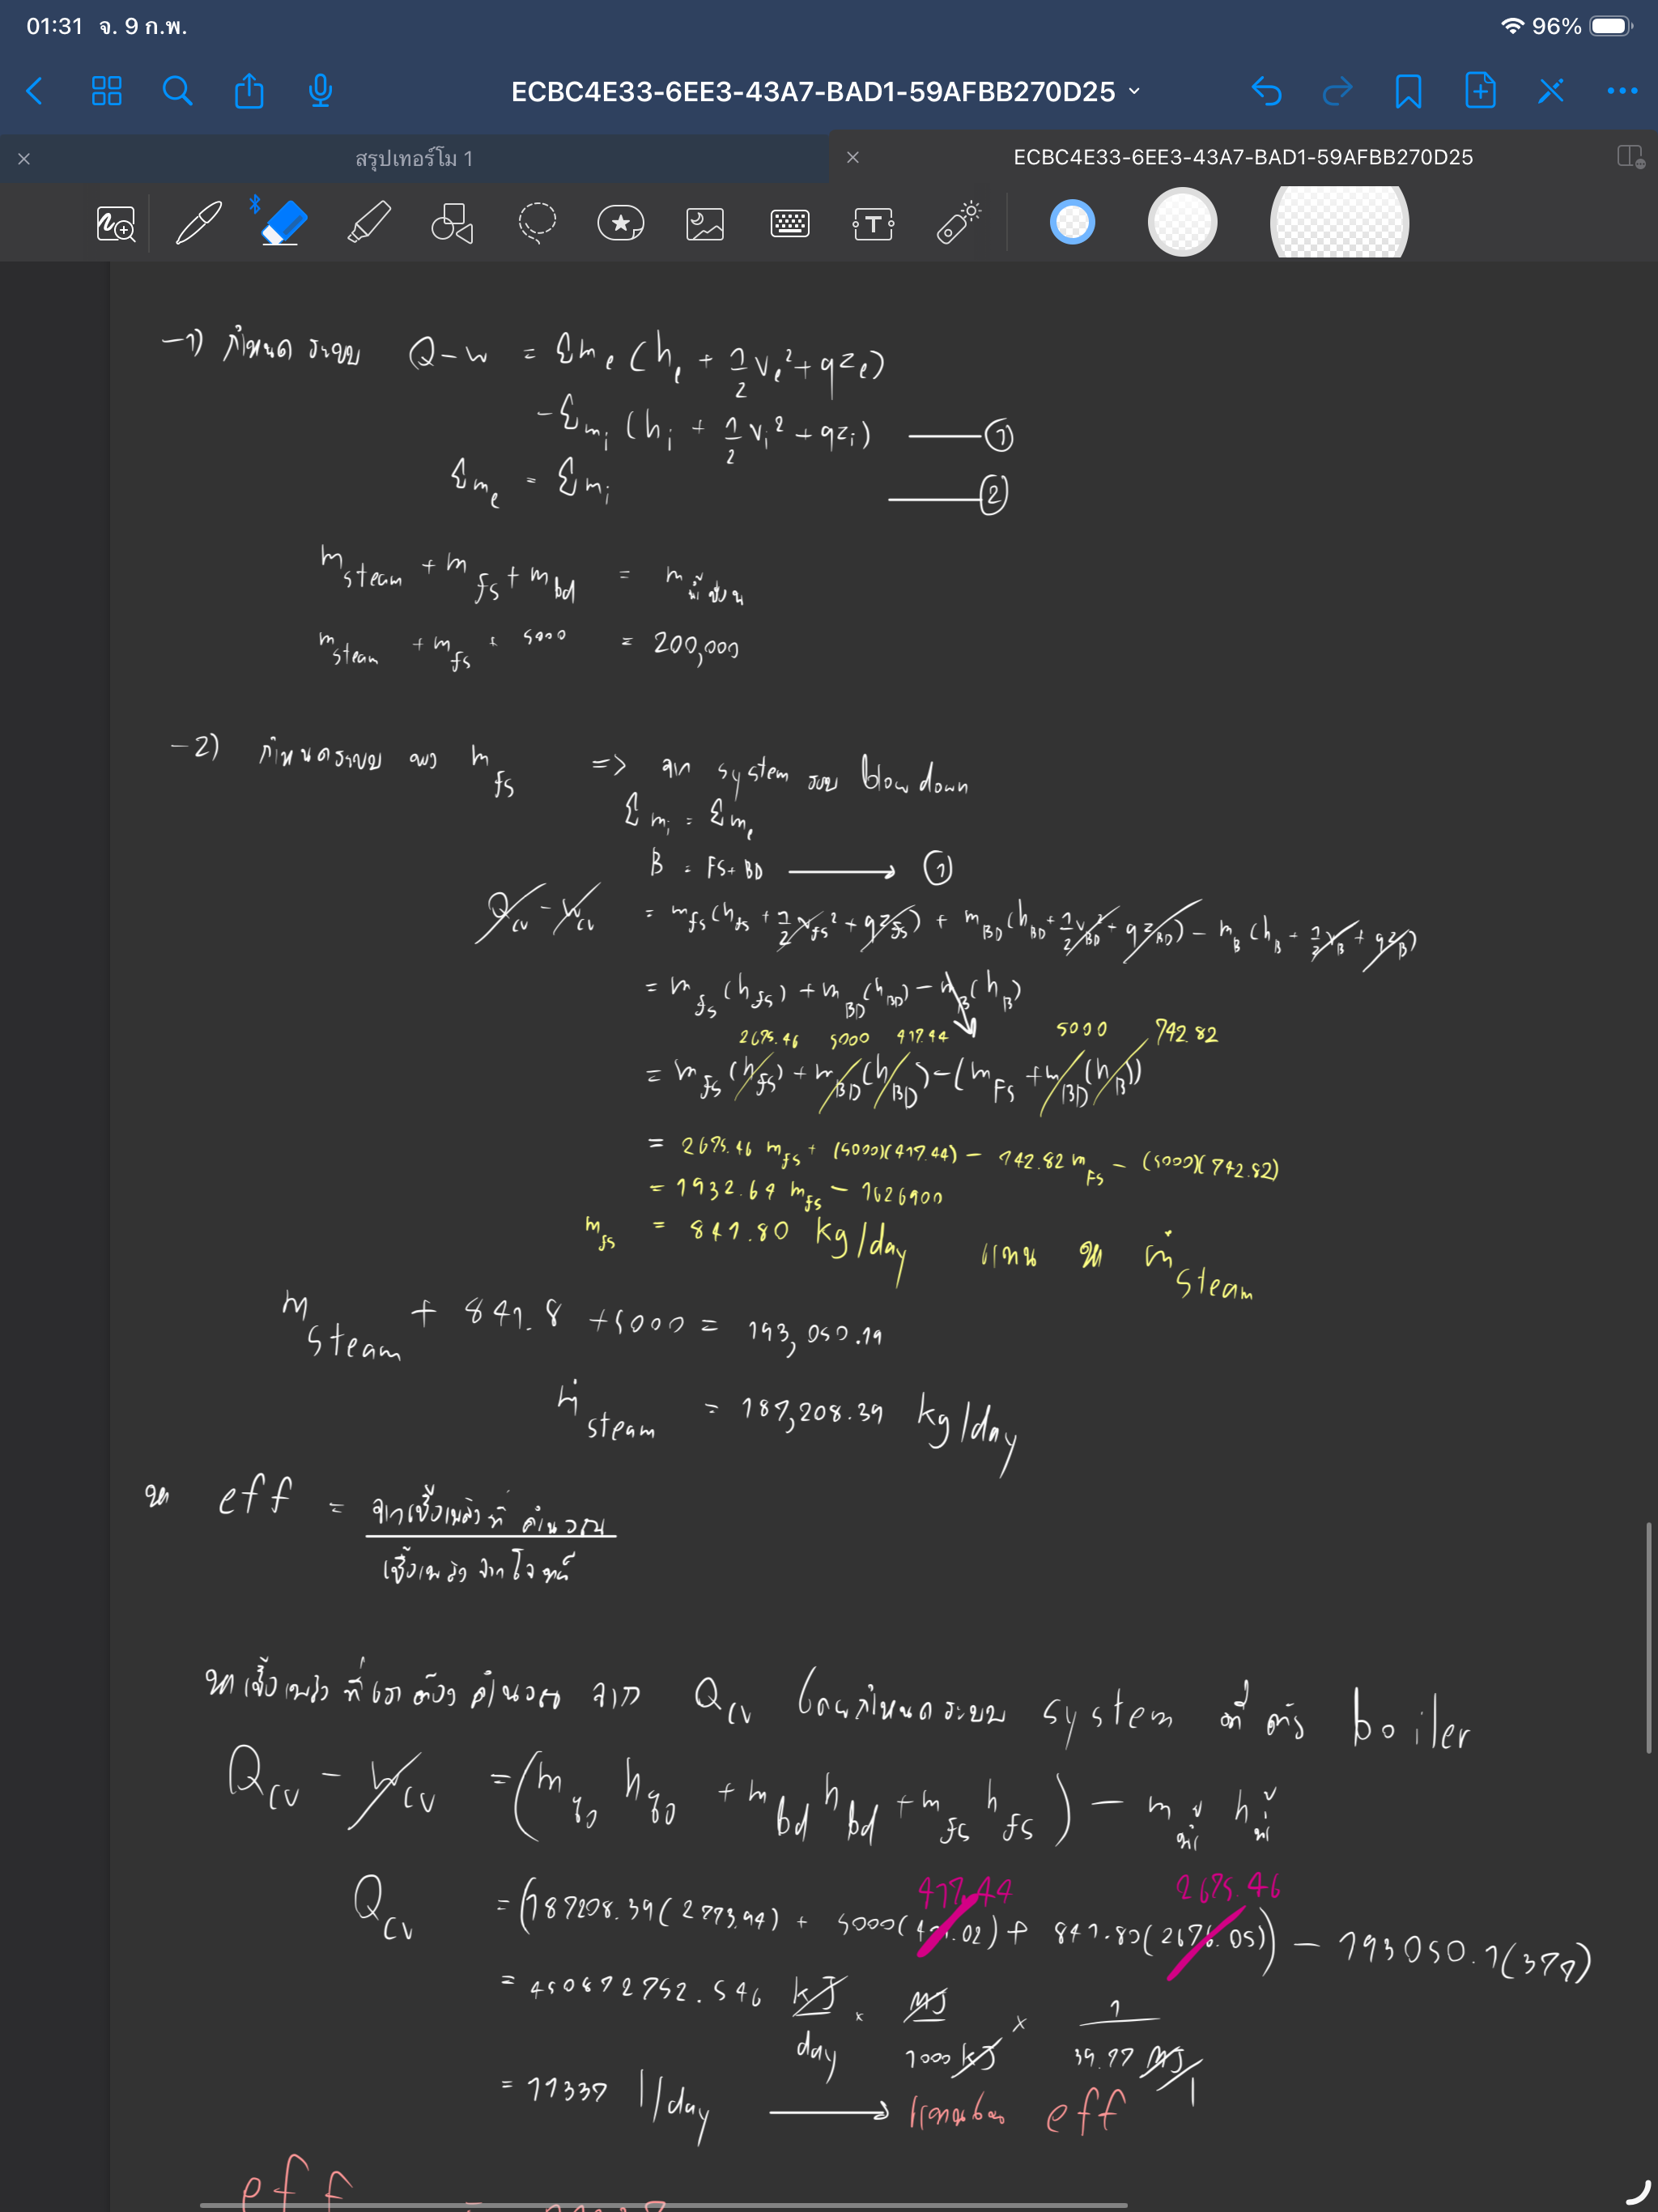 01:31 จ. 9 ก.พ. 96%
ECBC4E33-6EE3-43A7-BAD1-59AFBB270D25
สรุปเทอร์โม 1 ECBC4E33-6EE3-43A7-BAD1-59AFBB270D25
-1) กำหนด ระบบ Q - W = Σme (he + 1/2 Ve² + gZe)
- Σmi (hi + 1/2 Vi² + gZi) ①
Σme = Σmi ②
m steam + m fs + m bd = m น้ำป้อน
m steam + m fs + 5000 = 200,000
-2) กำหนดระบบ หา m fs => จาก system ระบบ blow down
Σmi = Σme
B = FS + BD → ①
Qcv - Wcv = mfs (hfs + 1/2 Vfs² + gZfs) + mBD (hBD + 1/2 VBD² + gZBD) - mB (hB + 1/2 VB + gZB)
= mfs (hfs) + mBD (hBD) - mB (hB)
2675.46 5000 417.44 5000 742.82
= mfs (hfs) + mBD (hBD) - (mFs + mBD (hB))
= 2675.46 mfs + (5000)(417.44) - 742.82 mFs - (5000)(742.82)
= 1932.64 mfs - 1626900
mfs = 841.80 kg/day แทน หา ṁ steam
m steam + 841.8 + 5000 = 193,050.19
ṁ steam = 187,208.39 kg/day
หา eff = จากเชื้อเพลิงที่ คำนวณ
เชื้อเพลิง จากโจทย์
หาเชื้อเพลิง ที่เราต้อง คำนวณ จาก Qcv โดยกำหนดระบบ system ที่ตัว boiler
Qcv - Wcv = (m ไอ h ไอ + m bd h bd + m fs h fs) - m น้ำ h น้ำ
417.44 2675.46
Qcv = (187208.39(2773.94) + 5000( .02) + 841.80(2676.05)) - 193050.1(377)
= 450872752.546 kJ/day × MJ/1000 kJ × 1/39.77 MJ/l
= 11337 l/day → แทนใน eff
eff